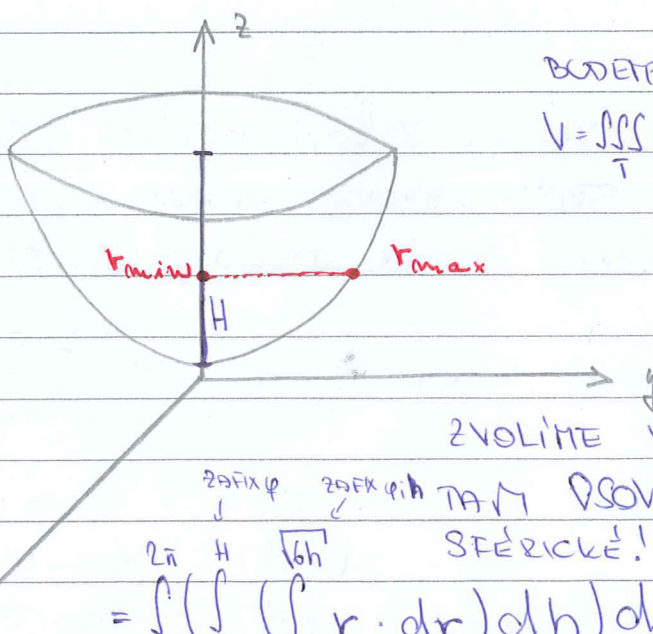 z
V = ∭
T
r min r max
H
y
ZVOLÍME V
ZAFIX φ ZAFIX φ i h TAM
SFÉRICKÉ!
2π H √6h
= ∫(∫(∫ r · dr)dh)d